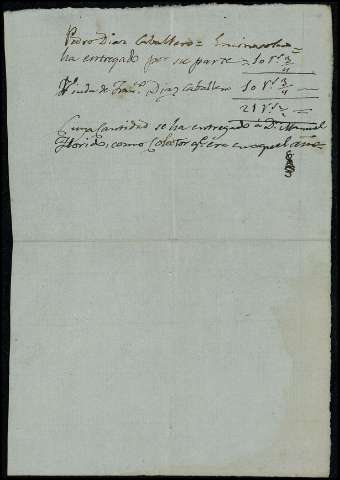 Pedro Diaz Caballero =
ha entregado por su parte = 10 r.s 3/4
V.da de Fran.co Diaz Caballero 10 r.s 3/4
21 r.s 1/2
Cuya Cantidad se ha entregado a D.n Manuel
Florid, como Colector q.e era en aquel año =